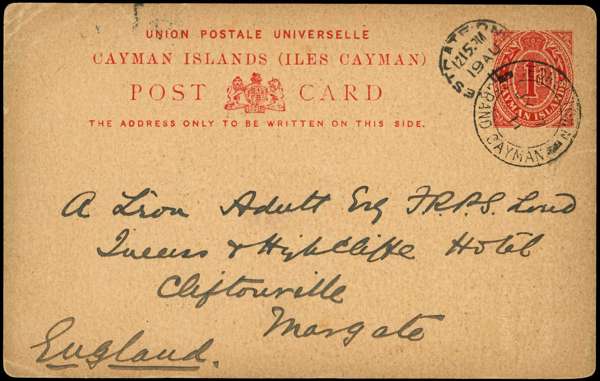 UNION POSTALE UNIVERSELLE
CAYMAN ISLANDS (ILES CAYMAN)
POST CARD
THE ADDRESS ONLY TO BE WRITTEN ON THIS SIDE.
1D
CAYMAN ISLANDS
12 15 PM
19 AU
GRAND CAYMAN
A Léon Adutt Esq F.R.P.S. Lond
Queens & Highcliffe Hotel
Cliftonville
Margate
England.